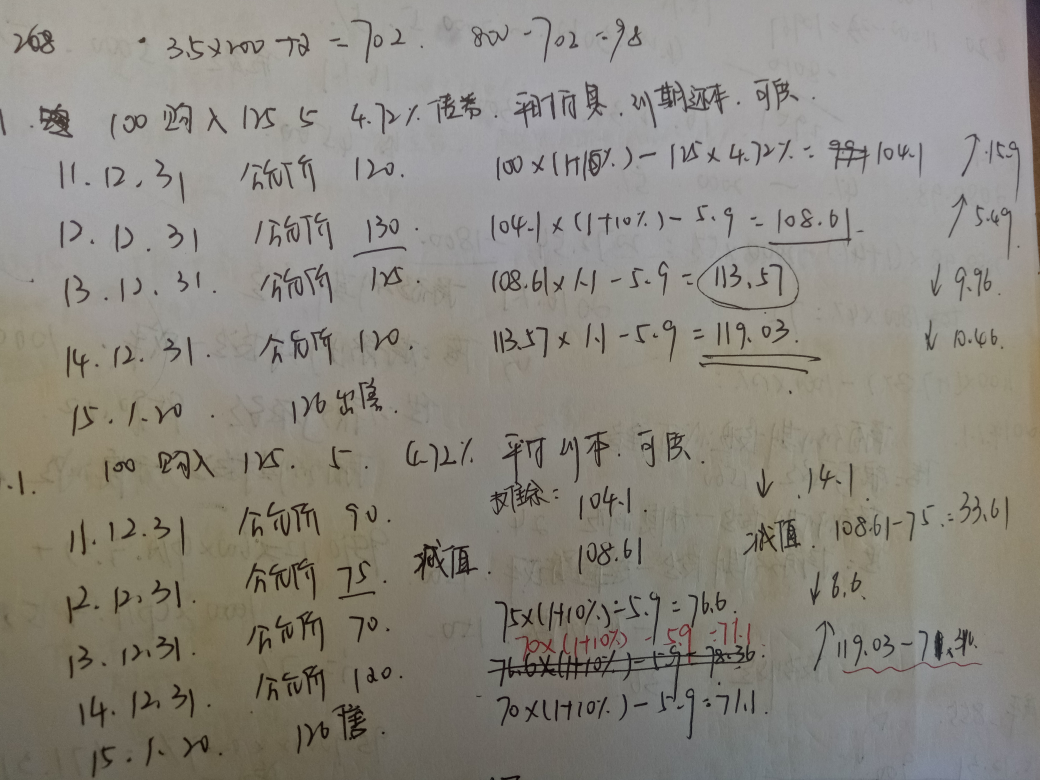 268 · 3.5×200+2 = 702. 800-702=98
1. 100购入 125 5 4.72% 债券. 平价付息, 到期还本. 可供.
11.12.31 公允价 120. 100×(1+10%)-125×4.72%= 104.1 ↑15.9
12.12.31 公允价 130. 104.1×(1+10%)-5.9=108.61 ↑5.49
13.12.31. 公允价 125. 108.61×1.1-5.9=113.57 ↓9.96.
14.12.31. 公允价 120. 113.57×1.1-5.9=119.03. ↓10.46.
15.1.20. 126出售.
.1. 100购入 125. 5. 4.72% 平付 到本. 可供.
11.12.31 公允价 90. 104.1. ↓14.1.
12.12.31. 公允价 75. 减值. 108.61 减值. 108.61-75=33.61
75×(1+10%)-5.9=76.6. ↓6.6.
13.12.31. 公允价 70. 70×(1+10%)-5.9=71.1
76.6×(1+10%)-5.9=78.36. ↑119.03-71.
14.12.31. 公允价 120. 70×(1+10%)-5.9=71.1.
15.1.20. 126售.